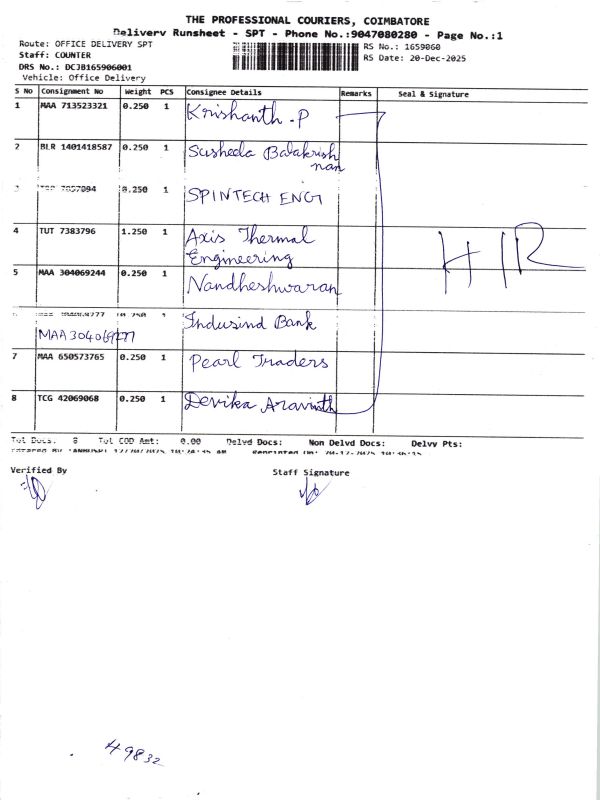 THE PROFESSIONAL COURIERS, COIMBATORE
Delivery Runsheet - SPT - Phone No.:9047080280 - Page No.:1
Route: OFFICE DELIVERY SPT
Staff: COUNTER
DRS No.: DCJB165906001
Vehicle: Office Delivery
RS No.: 1659060
RS Date: 20-Dec-2025
S No Consignment No Weight PCS Consignee Details Remarks Seal & Signature
1 MAA 713523321 0.250 1 Krishanth .P
2 BLR 1401418587 0.250 1 Susheela Balakrish
nan
3 7857094 0.250 1 SPINTECH ENGI
4 TUT 7383796 1.250 1 Axis Thermal
Engineering
HIR
5 MAA 304069244 0.250 1 Nandheshwaran
6 0.250 1 Indusind Bank
MAA 304069277
7 MAA 650573765 0.250 1 Pearl Traders
8 TCG 42069068 0.250 1 Devika Aravinth
Tot Docs: 8 Tot COD Amt: 0.00 Delvd Docs: Non Delvd Docs: Delvy Pts:
12/20/2025 10:24:35 AM Reprinted On: 20-12-2025 10:36:15
Verified By
Staff Signature
49832